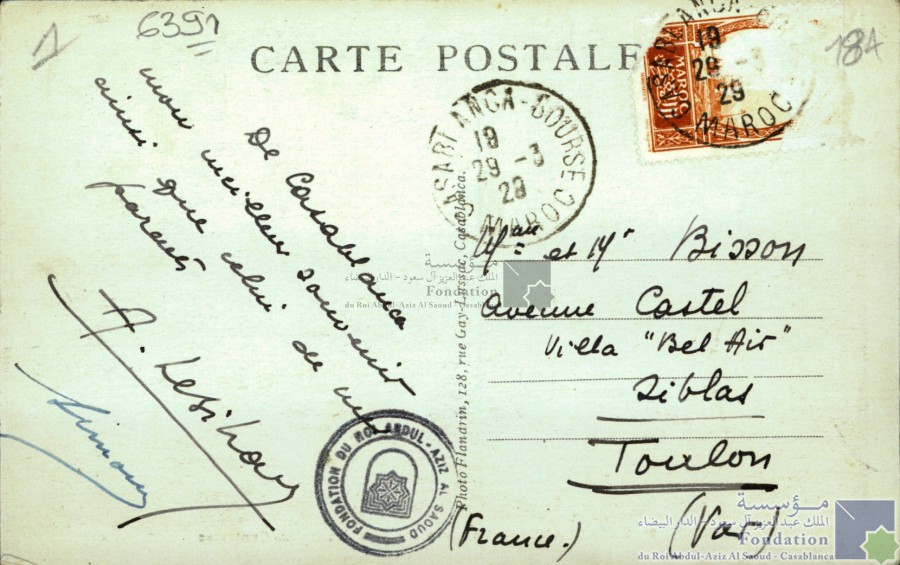 1
6391
184
CARTE POSTALE
MAROC
CASABLANCA-BOURSE
19
29 -3
29
MAROC
CASABLANCA-BOURSE
19
29 -3
29
MAROC
De Casablanca
mon meilleur souvenir
ainsi que celui de mes
parents
A.
Mme et Mr Bisson
Avenue Castel
Villa "Bel Air"
Siblas
Toulon
(Var)
(France.)
Photo Flandrin, 128, rue Gay-Lussac, Casablanca.
FONDATION DU ROI ABDUL-AZIZ AL SAOUD
مؤسسة
الملك عبد العزيز آل سعود - الدار البيضاء
Fondation
du Roi Abdul-Aziz Al Saoud - Casablanca
مؤسسة
الملك عبد العزيز آل سعود - الدار البيضاء
Fondation
du Roi Abdul-Aziz Al Saoud - Casablanca